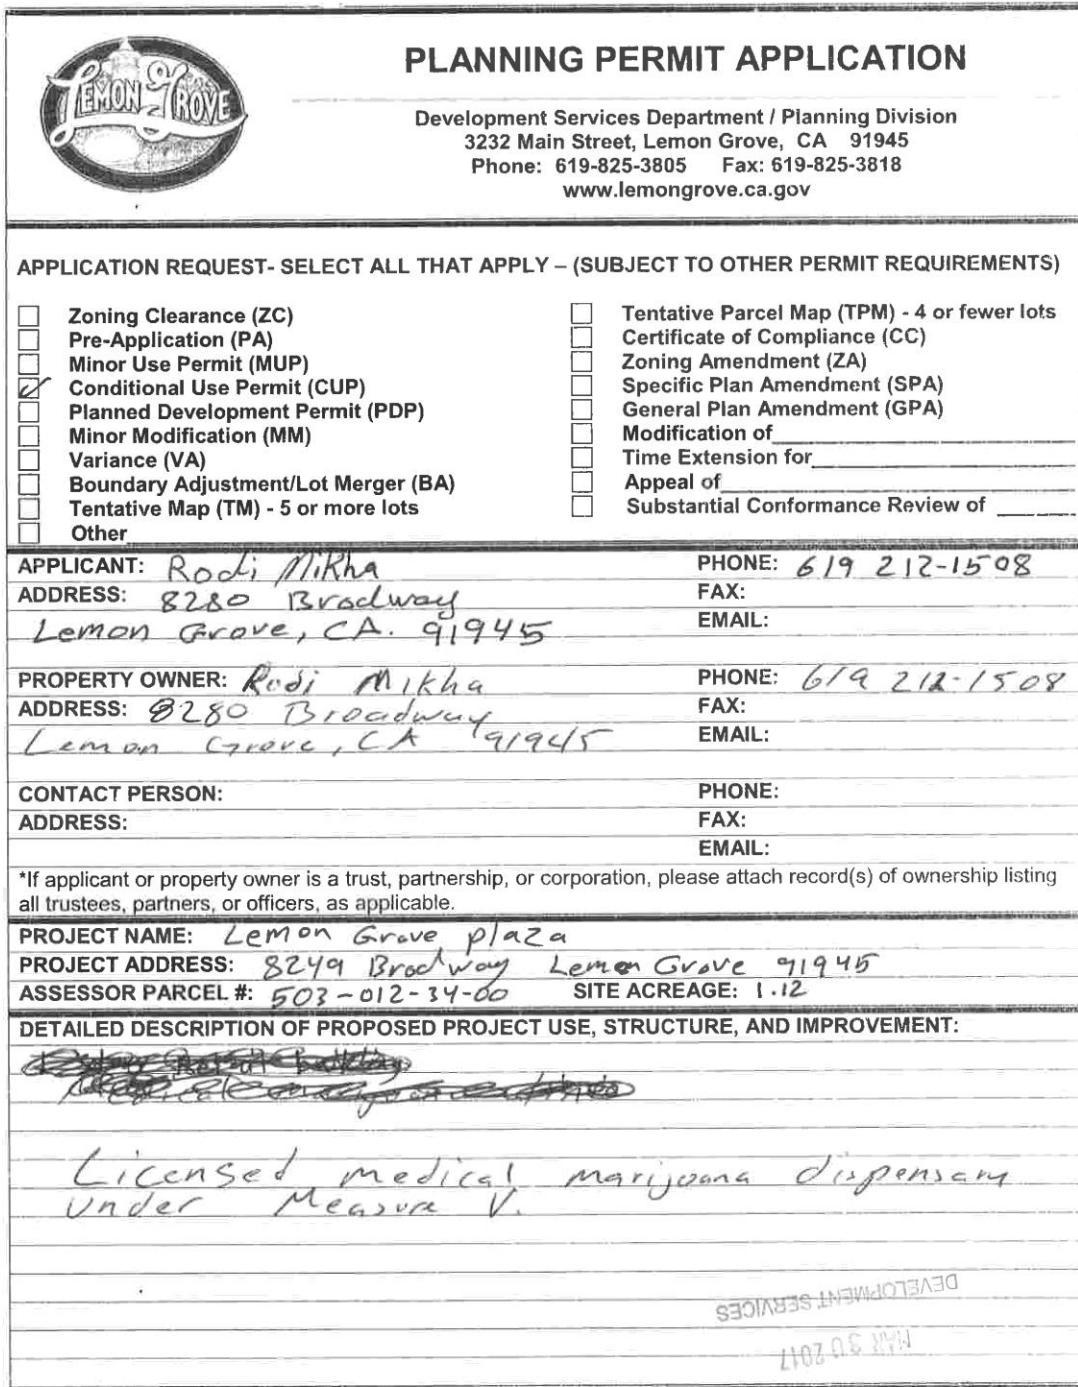 LEMON GROVE
PLANNING PERMIT APPLICATION
Development Services Department / Planning Division
3232 Main Street, Lemon Grove, CA 91945
Phone: 619-825-3805 Fax: 619-825-3818
www.lemongrove.ca.gov
APPLICATION REQUEST- SELECT ALL THAT APPLY – (SUBJECT TO OTHER PERMIT REQUIREMENTS)
Zoning Clearance (ZC)
Pre-Application (PA)
Minor Use Permit (MUP)
Conditional Use Permit (CUP)
Planned Development Permit (PDP)
Minor Modification (MM)
Variance (VA)
Boundary Adjustment/Lot Merger (BA)
Tentative Map (TM) - 5 or more lots
Other
Tentative Parcel Map (TPM) - 4 or fewer lots
Certificate of Compliance (CC)
Zoning Amendment (ZA)
Specific Plan Amendment (SPA)
General Plan Amendment (GPA)
Modification of
Time Extension for
Appeal of
Substantial Conformance Review of
APPLICANT: Rodi Mikha PHONE: 619 212-1508
ADDRESS: 8280 Brodway FAX:
Lemon Grove, CA. 91945 EMAIL:
PROPERTY OWNER: Rodi Mikha PHONE: 619 212-1508
ADDRESS: 8280 Broadway FAX:
Lemon Grove, CA 91945 EMAIL:
CONTACT PERSON: PHONE:
ADDRESS: FAX:
EMAIL:
*If applicant or property owner is a trust, partnership, or corporation, please attach record(s) of ownership listing
all trustees, partners, or officers, as applicable.
PROJECT NAME: Lemon Grove plaza
PROJECT ADDRESS: 8249 Brodway Lemon Grove 91945
ASSESSOR PARCEL #: 503-012-34-00 SITE ACREAGE: 1.12
DETAILED DESCRIPTION OF PROPOSED PROJECT USE, STRUCTURE, AND IMPROVEMENT:
Licensed medical marijoana dispensary
Under Measure V.
DEVELOPMENT SERVICES
MAR 30 2017